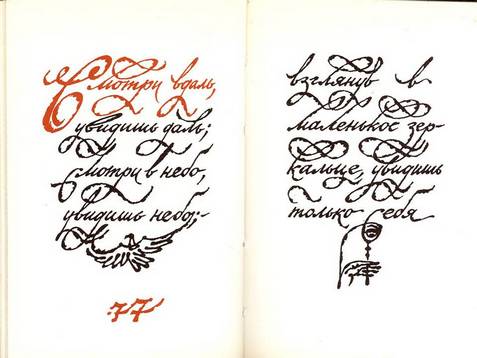 Смотри вдаль,
увидишь даль;
смотри в небо,
увидишь небо;-
77
взглянув в
маленькое зер-
кальце, увидишь
только себя